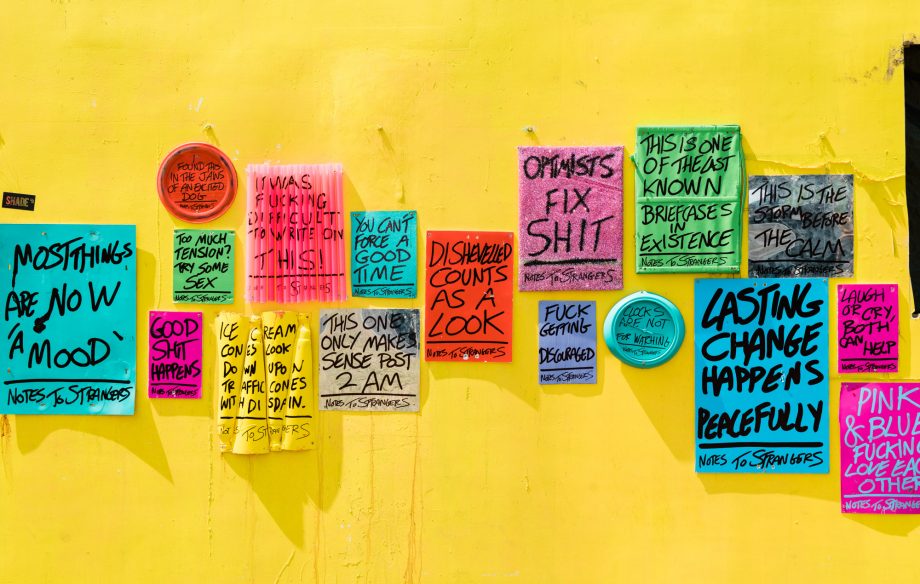 SHADE
MOST THINGS
ARE NOW
'A MOOD'
NOTES TO STRANGERS
I FOUND THIS
IN THE JAWS
OF AN EXCITED
DOG
NOTES TO STRANGERS
TOO MUCH
TENSION?
TRY SOME
SEX
NOTES TO STRANGERS
GOOD
SHIT
HAPPENS
NOTES TO STRANGERS
IT WAS
FUCKING
DIFFICULT
TO WRITE ON
THIS!
NOTES TO STRANGERS
ICE CREAM
CONES LOOK
DOWN UPON
TRAFFIC CONES
WITH DISDAIN.
NOTES TO STRANGERS
YOU CAN'T
FORCE A
GOOD
TIME
NOTES TO STRANGERS
THIS ONE
ONLY MAKES
SENSE POST
2 AM
NOTES TO STRANGERS
DISHEVELLED
COUNTS
AS A
LOOK
NOTES TO STRANGERS
OPTIMISTS
FIX
SHIT
NOTES TO STRANGERS
FUCK
GETTING
DISCOURAGED
NOTES TO STRANGERS
CLOCKS
ARE NOT
FOR WATCHING
NOTES TO STRANGERS
THIS IS ONE
OF THE LAST
KNOWN
BRIEFCASES IN
EXISTENCE
NOTES TO STRANGERS
THIS IS THE
STORM BEFORE
THE CALM
NOTES TO STRANGERS
LASTING
CHANGE
HAPPENS
PEACEFULLY
NOTES TO STRANGERS
LAUGH
OR CRY,
BOTH
CAN HELP
NOTES TO STRANGERS
PINK
& BLUE
FUCKING
LOVE EACH
OTHER
NOTES TO STRANGERS